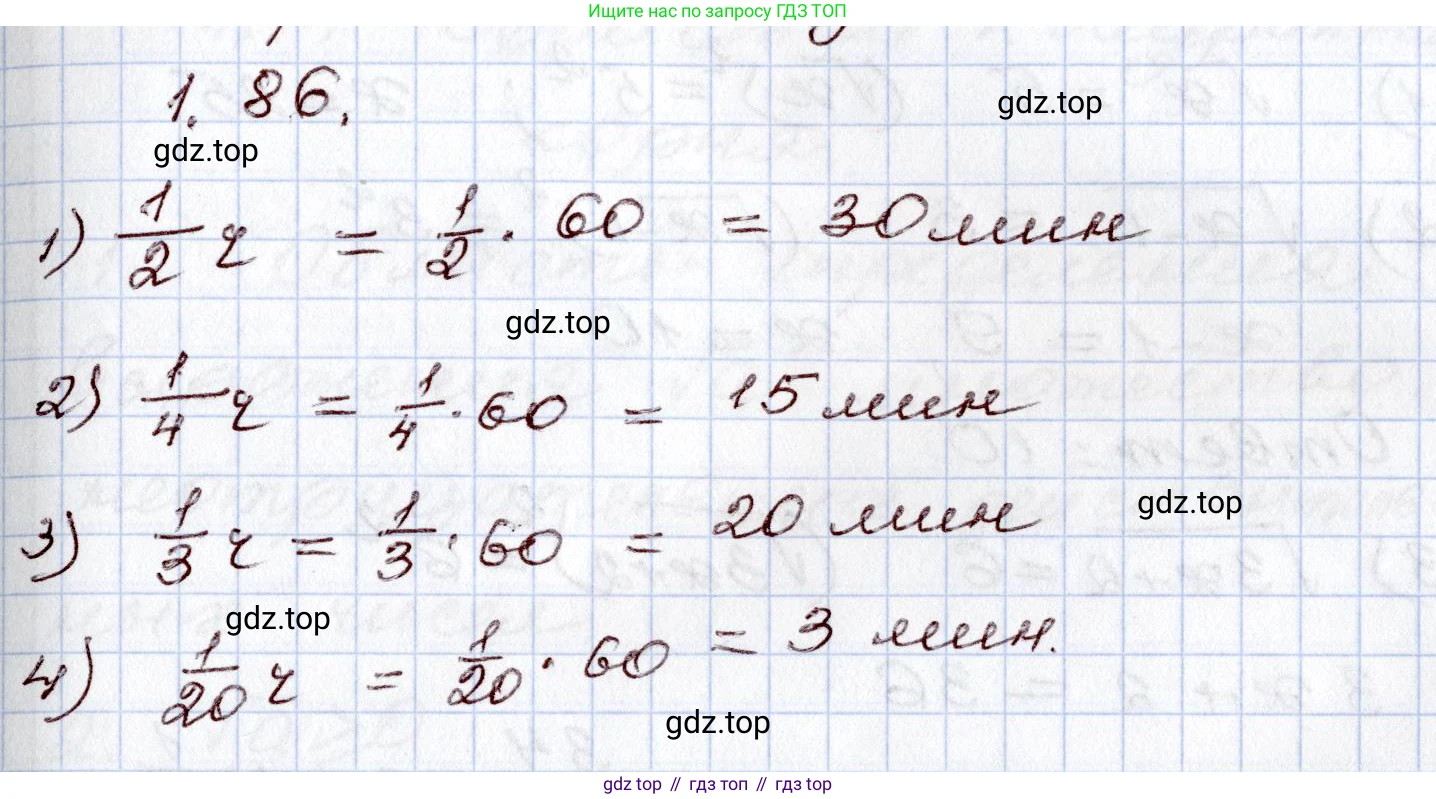 Ищите нас по запросу ГДЗ ТОП
1.86.
gdz.top
gdz.top
1) 1/2 ч = 1/2 · 60 = 30 мин
gdz.top
2) 1/4 ч = 1/4 · 60 = 15 мин
3) 1/3 ч = 1/3 · 60 = 20 мин
gdz.top
gdz.top
4) 1/20 ч = 1/20 · 60 = 3 мин.
gdz.top
gdz top // гдз топ // гдз top